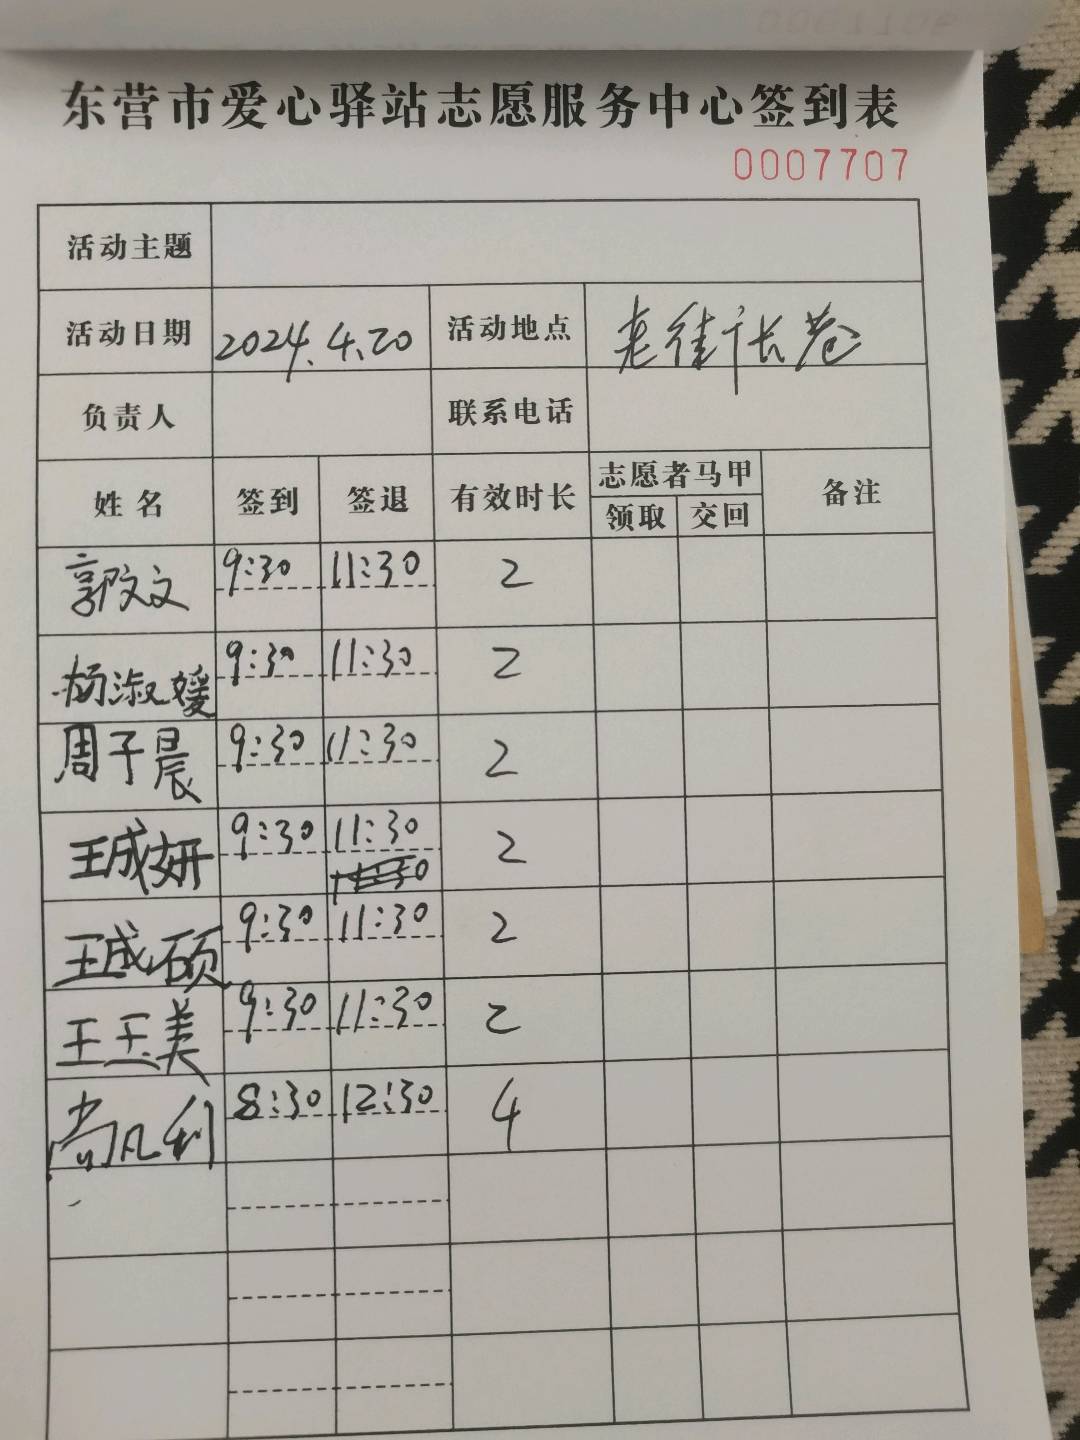 东营市爱心驿站志愿服务中心签到表
0007707
活动主题
活动日期 2024.4.20 活动地点 老街长卷
负责人 联系电话
姓名 签到 签退 有效时长 志愿者马甲 备注
领取 交回
郭文文 9:30 11:30 2
杨淑媛 9:30 11:30 2
周子晨 9:30 11:30 2
王成妍 9:30 11:30 2
王成硕 9:30 11:30 2
王玉美 9:30 11:30 2
尚凡利 8:30 12:30 4